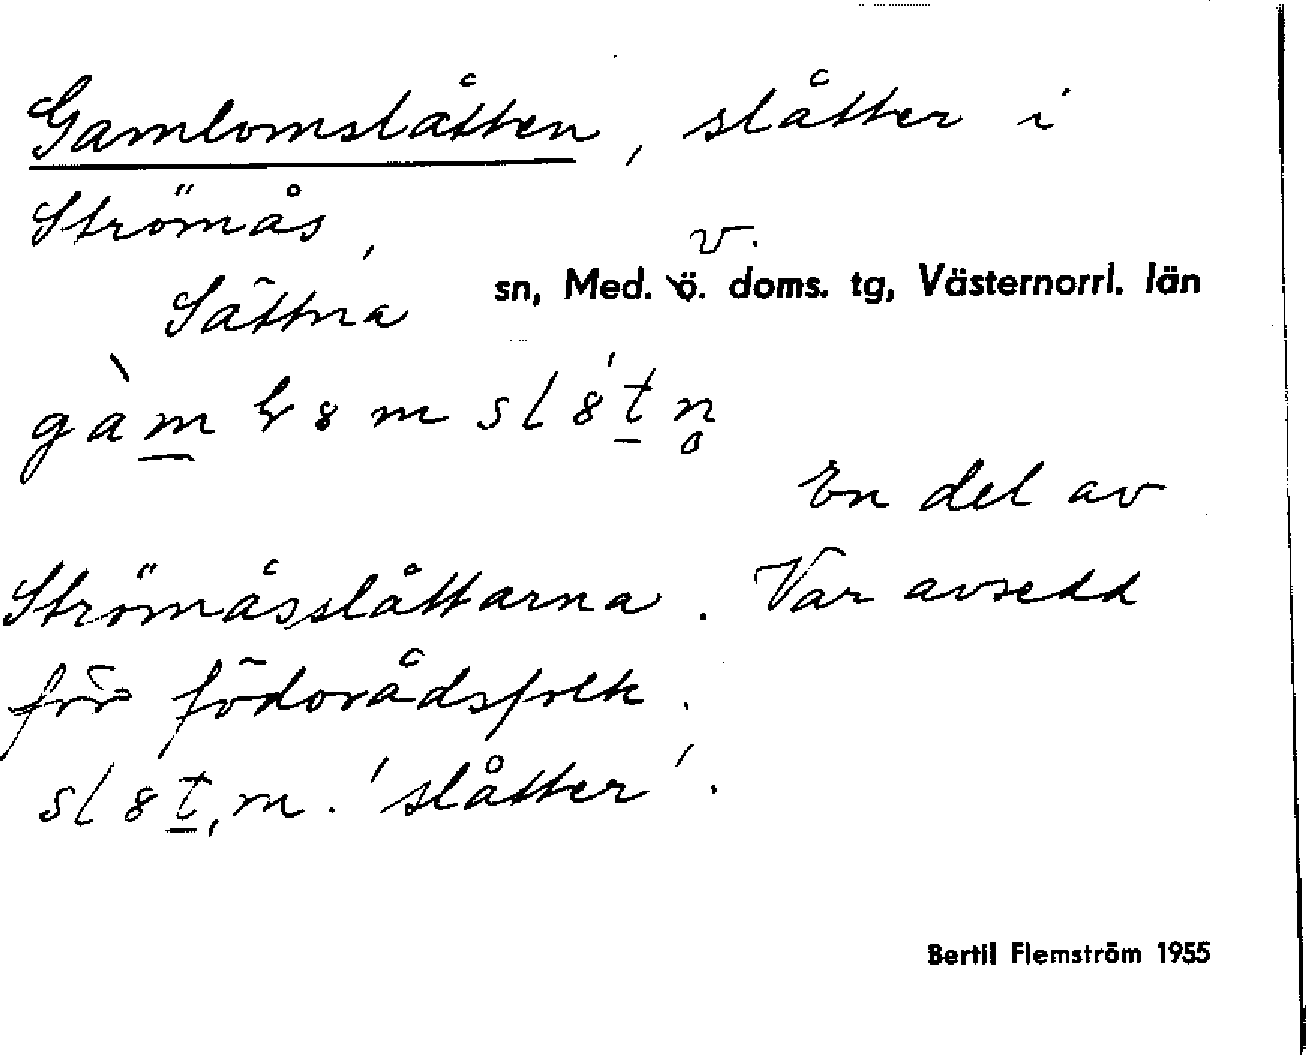 Gamlomslåtten, slåtter i
Strömås,
v.
Sättna sn, Med. ö. doms. tg, Västernorrl. län
gàm̲ ɫ8m sl8́t̲n̥
En del av
Strömåsslåttarna. Var avsedd
för födorådsfolk.
sl8t̲, m. 'slåtter'.
Bertil Flemström 1955